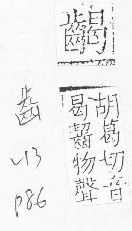 胡葛切音
曷齧物聲
齒
v13
p86